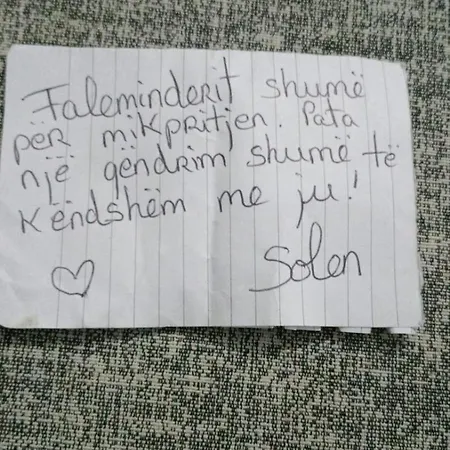 Faleminderit shumë
për mikpritjen. Pata
një qëndrim shumë të
Këndshëm me ju!
Solen